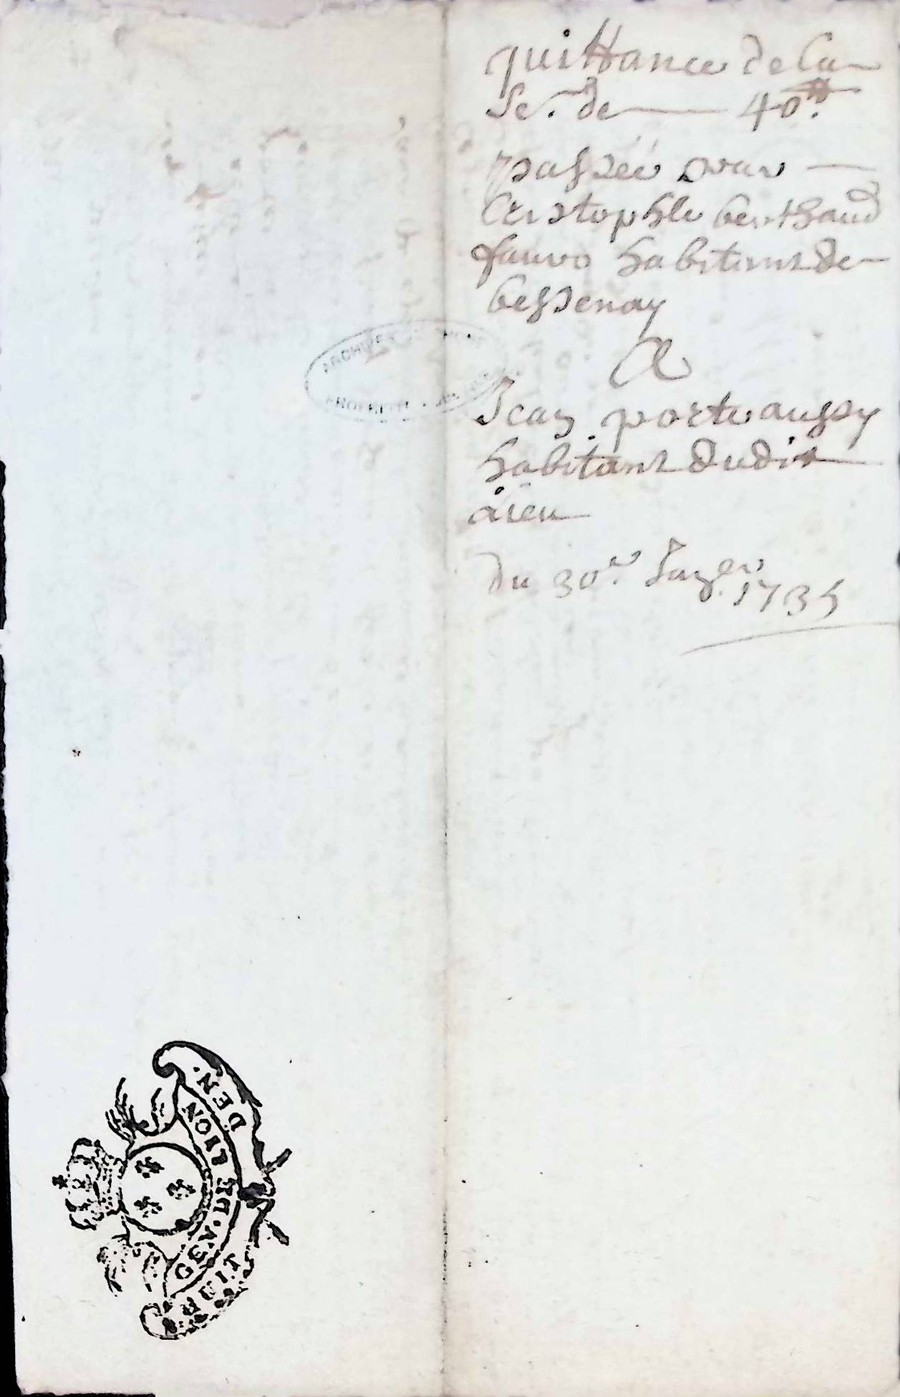 quittance de la
Se. de 40#.
passée par
Cristophle berthaud
fauvo habitant de
bessenay
A
Jean porte aussy
habitant dudit
lieu
du 30e. Janver
1735
ARCHIVES
GEN. DE LYON
DEN.